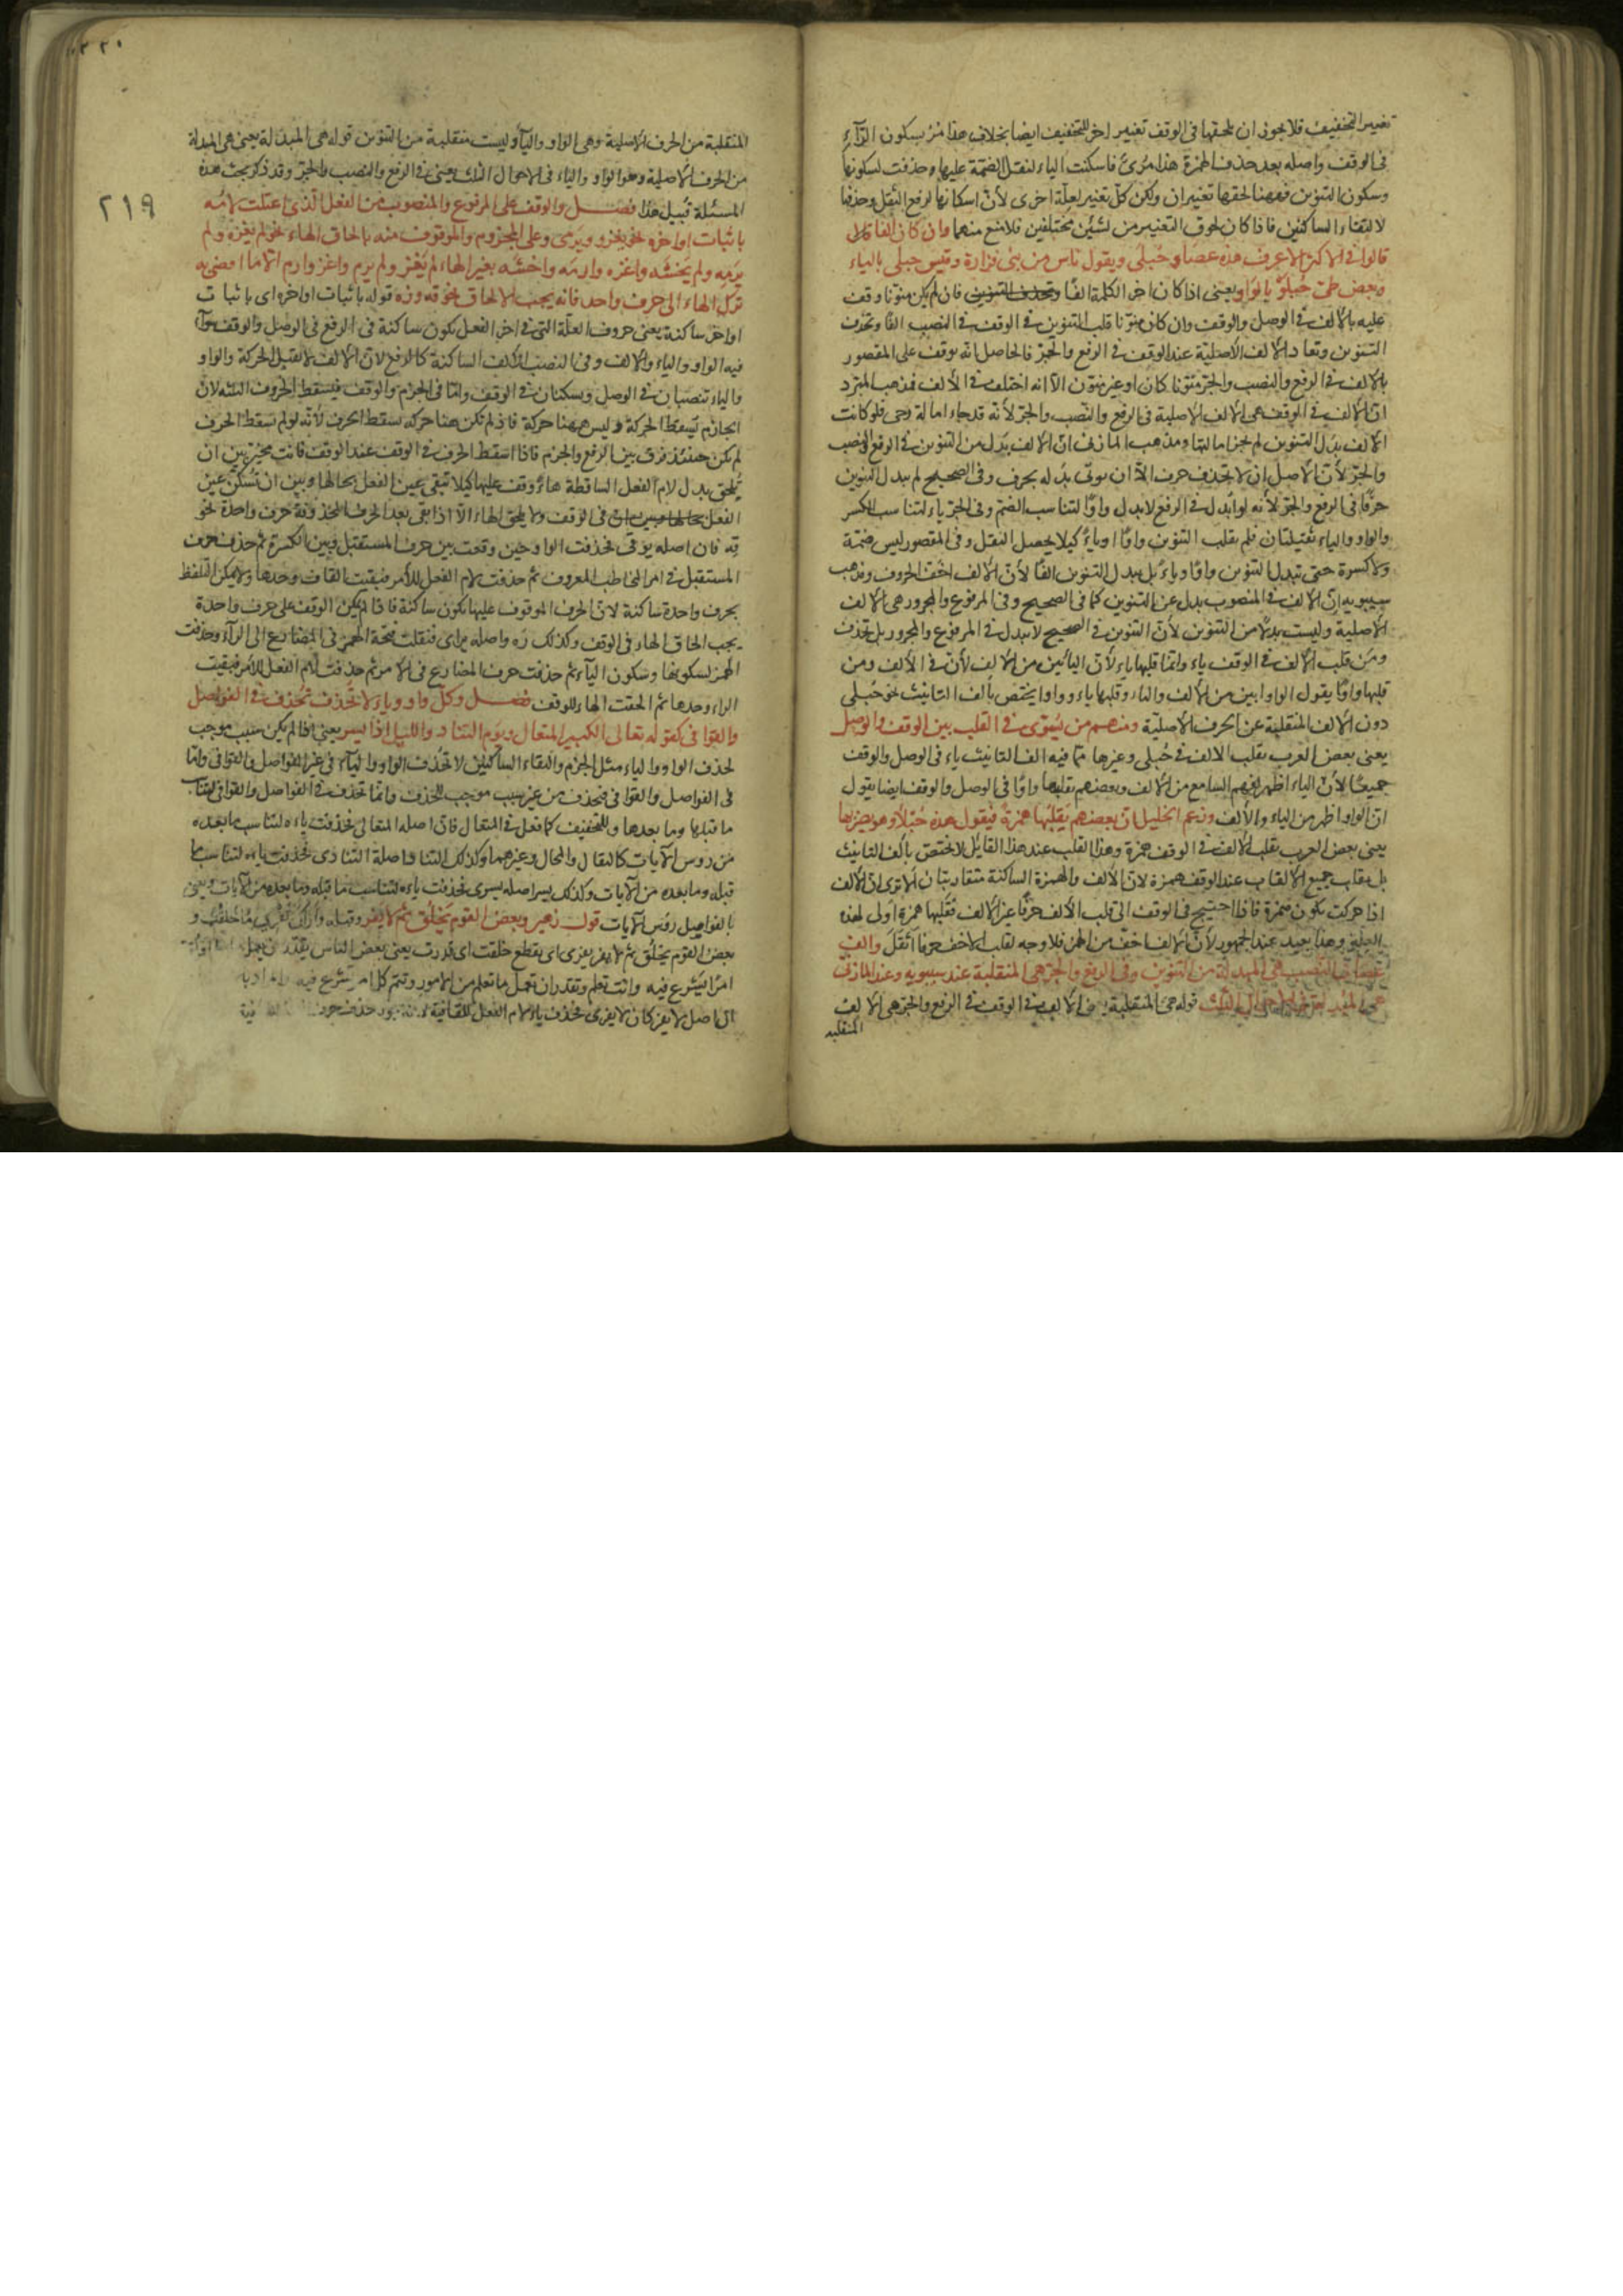 تغيير التخفيف فلا يجوز ان يلحقها في الوقف تغيير اخر للتخفيف ايضا بخلاف هذا مُرْ بسكون الرّآء
في الوقف واصله بعد حذف الهمزة هذا مُرِئٌ فاسكنت الياء لنقل الضمّة عليها وحذفت لسكونها
وسكون التنوين فههنا لحقها تغييران ولكن كلّ تغيير لعلّة اخرى لأنّ اسكانها لرفع الثِّقل وحذفها
لالتقاء الساكنين فاذا كان لحوق التغيير من لشيئين مختلفين فلا منع منهما وان كان الفا قال
قالوا في الاكثر الاعرف هذه عصا وحُبلى ويقول ناس من بنى فزارة وقيس حبلى بالياء
وبعض طى حُبلَوْ بالواو يعني اذا كان اخر الكلمة الفًا وتحذف التنوين فان لم يكن منوّنا وقف
عليه بالألف في الوصل والوقف وان كان منوّنا قلب التنوين في الوقف في النصب الفًا وتحذف
التنوين وتعاد الألف الأصليّة عند الوقف في الرفع والجرّ فالحاصل انّه يوقف على المقصور
بالألف في الرفع والنصب والجرّ منوّنا كان او غير منوّن الّا انه اختلف في الألف فذهب المبرّد
انّ الألف في الوقف هى الألف الأصلية في الرفع والنّصب والجرّ لأنّه قد جاء امالة رحى فلو كانت
الألف بدل التنوين لم يجز امالتها ومذهب المازنى انّ الألف بَدل من التنوين في الرفع والنصب
والجرّ لأنّ الأصل ان لا يحذف حرف الّا ان يوتى بدله بحرف وفي الصحيح لم يبدل التنوين
حرفًا في الرفع والجرّ لأنه لو ابدل في الرفع لابدل واوًا لتناسب الضمّ وفي الجرّ ياء لتناسب الكسر
والواو والياء ثقيلتان فلم يقلب التنوين واوًا او ياءً كيلا يحصل الثقل وفي المقصور ليس ضمّة
ولا كسرة حتى تبدل التنوين واوًا وياءً بل يبدل التنوين الفًا لأنّ الألف اخفّ الحروف ومذهب
سيبويه انّ الألف في المنصوب بدل عن التنوين كما في الصحيح وفي المرفوع والمجرور هى الألف
الأصلية وليست بدلًا من التنوين لأنّ التنوين في الصحيح لا يبدل في المرفوع والمجرور بل تحذف
ومن قلب الألف في الوقف ياء وانما قلبها ياء لأنّ اليائين من الألف لأن في الألف ومن
قلبها واوًا يقول الواو ابين من الألف والياء وقلبها ياء وواوا يختص بألف التانيث نحو حُبلى
دون الألف المنقلبة عن الحرف الأصليّة ومنهم من يُسَوّى في القلب بين الوقف والوصل
يعنى بعض العرب يقلب الالف في حُبلى وغيرها ممّا فيه الف التانيث ياء في الوصل والوقف
جميعًا لأنّ الياء اظهر لفهم السامع من الألف وبعضهم يقلبها واوًا في الوصل والوقف ايضا يقول
انّ الواو اظهر من الياء والألف وزعم الخليل انّ بعضهم يَقلِبُها همزةً فيقول هذه حُبْلأ وهو يضربها
يعنى بعض العرب يقلب الألف في الوقف همزة وهذا القلب عند هذا القايل لا يختص بألف التانيث
بل يقلب جميع الألفات عند الوقف همزة لانّ الألف والهمزة الساكنة متقاربتان ألا ترى انّ الألف
اذا حركت يكون همزة فاذا احتيج في الوقف الى قلب الألف حرفًا غير الألف فقلبها همزة اولى لهذه
العلّة وهذا بعيد عند الجمهور لأنّ الألف اخفّ من الهمز فلا وجه لقلب الاخف حرفا اثقل والف
عصا في النّصب هى المبدلة من التنوين وفي الرفع والجرّ هى المنقلبة عند سيبويه وعند المازنى
هى المبدلة في الاحوال الثلث قوله هى المنقلبة يعنى الألف في الوقف في الرفع والجرّ هى الالف
المنقلبه
٢٢٠
٢١٩
المنقلبة من الحرف الأصلية وهى الواو والياء وليست منقلبة من التنوين قوله هى المبدلة يعنى هى المبدلة
من الحرف الأصلية وهو الواو والياء في الاحوال الثلث يعنى في الرفع والنصب والجرّ وقد ذكر بحث هذه
المسئلة قبيل هذا فصل والوقف على المرفوع والمنصوب من الفعل الّذى اعتلت لامُه
باثبات اواخره نحو يغزو ويرمى وعلى المجزوم والموقوف منه بالحاق الهاء نحو لم يغزه ولم
يرمه ولم يخشه واغزه وارمه واخشه بغير الهاء لم يغز ولم يرم واغز وارم الّا ما افضى به
ترك الهاء الى حرف واحد فانه يجب الالحاق نحو قه وره قوله باثبات اواخره اى باثبات
اواخر ساكنة يعنى حروف العلّة التى في اخر الفعل يكون ساكنة في الرفع في الوصل والوقف سوآء
فيه الواو والياء والألف وفي النصب الألف الساكنة كالرفع لانّ الألف لا تقبل الحركة والواو
والياء تنصبان في الوصل ويسكنان في الوقف وامّا في الجزم والوقف فيسقط الحروف الثلثه لانّ
الجازم يُسقط الحركة وليس ههنا حركة فاذ لم تكن هنا حركة سقط الحرف لأنّه لو لم يسقط الحرف
لم يكن حينئذ فرق بين الرفع والجزم فاذا اسقط الحرف في الوقف عند الوقف فانت مخيّر بين ان
يُلحق بدل لام الفعل الساقطة هاءً وقف عليها كيلا تبقى عين الفعل بحالها وبين ان تُسكن عين
الفعل بحالها وبين ان في الوقف ولا يلحق الهاء الّا اذا بقى بعد الحرف المحذوفة حرف واحدة نحو
قِه فان اصله يوقى فحذفت الواو حين وقعت بين حرف المستقبل وبين الكسرة ثم حذف حرف
المستقبل في امر المخاطب المعروف ثم حذفت لام الفعل للأمر فبقيت القاف وحدها ولا يمكن التلفظ
بحرف واحدة ساكنة لانّ الحرف الموقوف عليها يكون ساكنة فاذا لم يمكن الوقف على حرف واحدة
يجب الحاق الهاء في الوقف وكذلك رَه واصله يراى فنقلت فتحة الهمز في المضارع الى الرآء وحذفت
الهمز لسكونها وسكون الياء ثم حذفت حرف المضارع في الامر ثم حذفت لام الفعل للأمر فبقيت
الراء وحدها ثم الحقت الهاء للوقف فصل وكل واو وياء لا تُحذف تُحذف في الفواصل
والقوافى كقوله تعالى الكبير المتعال ويوم التناد والليل اذا يسر يعنى اذا لم يكن سبب موجب
لحذف الواو والياء مثل الجزم والتقاء الساكنين لا تُحذف الواو والياء في غير الفواصل والقوافى وامّا
في الفواصل والقوافى فيحذف من غير سبب موجب للحذف وانما تحذف في الفواصل والقوافى لتناسب
ما قبلها وما بعدها وللتخفيف كما فعل في المتعال فان اصله المتعالى فحذفت ياءه لتناسب ما بعده
من روس الآيات كالثقال والمحال وغيرهما وكذلك التناد اصله التنادى فحذفت ياءه لتناسب ما
قبله وما بعده من الآيات وكذلك يسر اصله يسرى فحذفت ياءه لتناسب ما قبله وما بعده من الآيات ويعنى
بالفواصل روس الآيات قول زهير وبعض القوم يَخلُق ثم لا يفر وقبله وأراك تفرى ما خلقت و
بعض القوم يخلق ثم لا يفر يفرى اى يقطع خلقت اى قدرت يعنى بعض الناس يقدّر ان يعمل
امرًا يَشرع فيه وانت تعلم وتقدر ان تعمل ما تعلم من الامور وتتم كل امر تشرع فيه
الفاصل لا يفر كان لا يفرى فحذف ياء لام الفعل للقافية